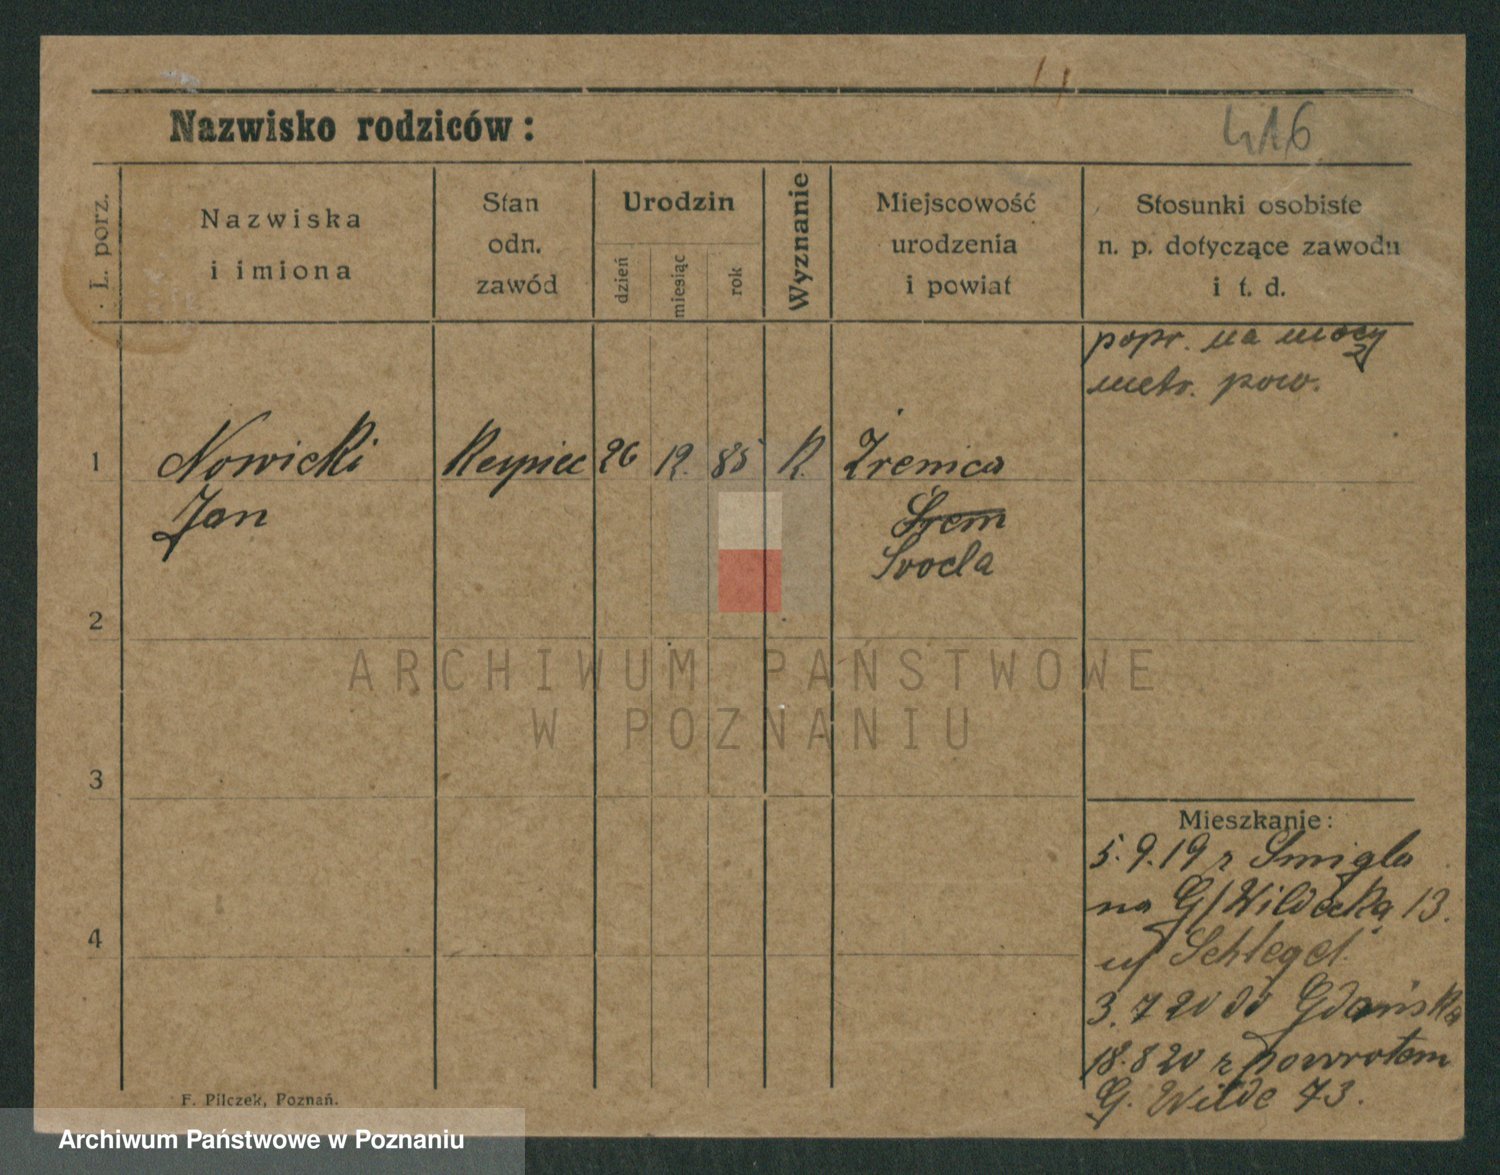 416
Nazwisko rodziców :
L. porz.
Nazwiska
i imiona
Stan
odn.
zawód
Urodzin
dzień
miesiąc
rok
Wyznanie
Miejscowość
urodzenia
i powiat
Stosunki osobiste
n. p. dotyczące zawodu
i t. d.
popr. na mocy
metr. pow.
1
Nowicki
Jan
Kupiec
26
12.
85
K.
Żrenica
Śrem
Środa
2
3
4
Mieszkanie :
5.9.19 z Śmigla
na G/Wildecką 13.
u/ Schlegel
3.7 20 do Gdańska
18.8 20 z powrotem
G. Wilde 73.
F. Pilczek, Poznań.
ARCHIWUM PAŃSTWOWE
W POZNANIU
Archiwum Państwowe w Poznaniu